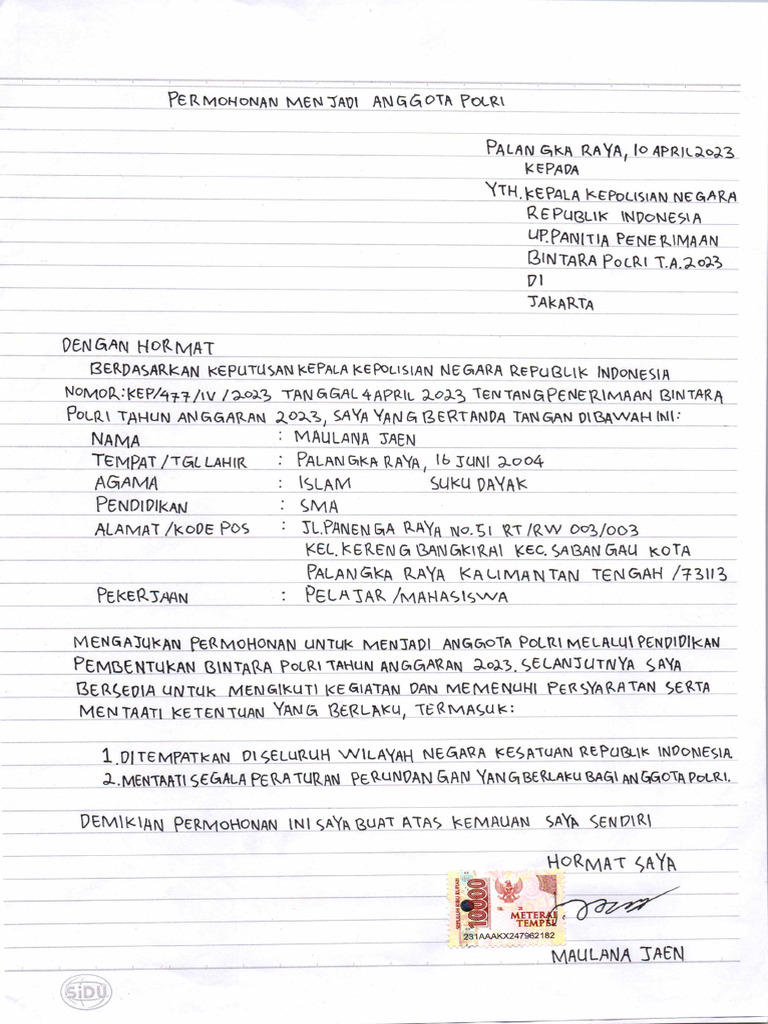 PERMOHONAN MENJADI ANGGOTA POLRI
PALANGKA RAYA, 10 APRIL 2023
KEPADA
YTH. KEPALA KEPOLISIAN NEGARA
REPUBLIK INDONESIA
UP. PANITIA PENERIMAAN
BINTARA POLRI T.A. 2023
DI
JAKARTA
DENGAN HORMAT
BERDASARKAN KEPUTUSAN KEPALA KEPOLISIAN NEGARA REPUBLIK INDONESIA
NOMOR: KEP/477/IV/2023 TANGGAL 4 APRIL 2023 TENTANG PENERIMAAN BINTARA
POLRI TAHUN ANGGARAN 2023, SAYA YANG BERTANDA TANGAN DIBAWAH INI:
NAMA : MAULANA JAEN
TEMPAT/TGL LAHIR : PALANGKA RAYA, 16 JUNI 2004
AGAMA : ISLAM SUKU DAYAK
PENDIDIKAN : SMA
ALAMAT/KODE POS : JL. PANENGA RAYA NO. 51 RT/RW 003/003
KEL. KERENG BANGKIRAI KEC. SABANGAU KOTA
PALANGKA RAYA KALIMANTAN TENGAH /73113
PEKERJAAN : PELAJAR/MAHASISWA
MENGAJUKAN PERMOHONAN UNTUK MENJADI ANGGOTA POLRI MELALUI PENDIDIKAN
PEMBENTUKAN BINTARA POLRI TAHUN ANGGARAN 2023. SELANJUTNYA SAYA
BERSEDIA UNTUK MENGIKUTI KEGIATAN DAN MEMENUHI PERSYARATAN SERTA
MENTAATI KETENTUAN YANG BERLAKU, TERMASUK:
1. DITEMPATKAN DI SELURUH WILAYAH NEGARA KESATUAN REPUBLIK INDONESIA
2. MENTAATI SEGALA PERATURAN PERUNDANGAN YANG BERLAKU BAGI ANGGOTA POLRI.
DEMIKIAN PERMOHONAN INI SAYA BUAT ATAS KEMAUAN SAYA SENDIRI
HORMAT SAYA
SEPULUH RIBU RUPIAH
10000
METERAI
TEMPEL
231AAAKX247962182
MAULANA JAEN
SiDU